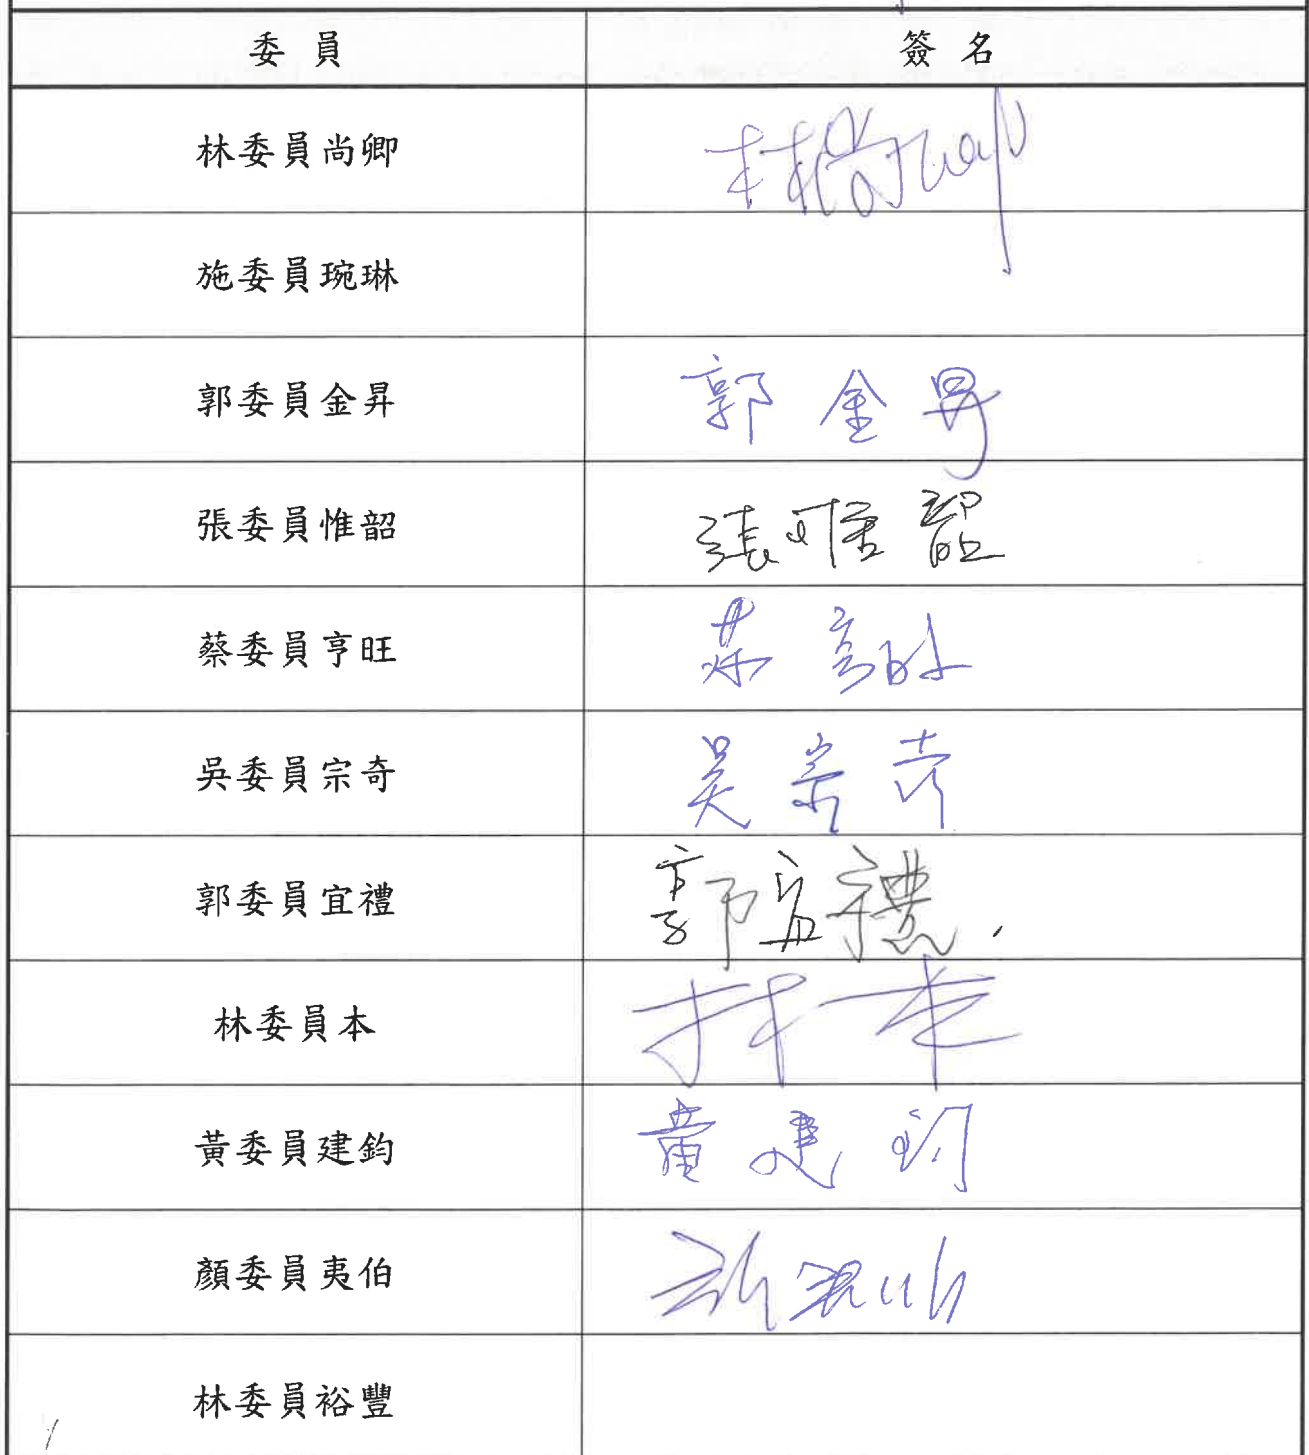 委員 簽名
林委員尚卿 林尚卿
施委員琬琳
郭委員金昇 郭金昇
張委員惟韶 張惟韶
蔡委員亨旺 蔡亨旺
吳委員宗奇 吳宗奇
郭委員宜禮 郭宜禮
林委員本 林本
黃委員建鈞 黃建鈞
顏委員夷伯
林委員裕豐